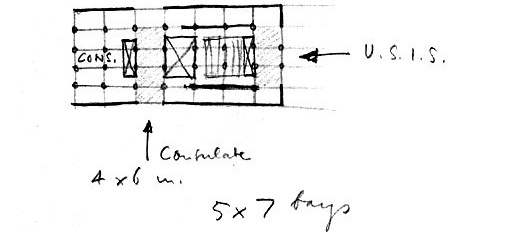 CONS.
U.S.I.S.
Consulate
4 x 6 m.
5 x 7 bays